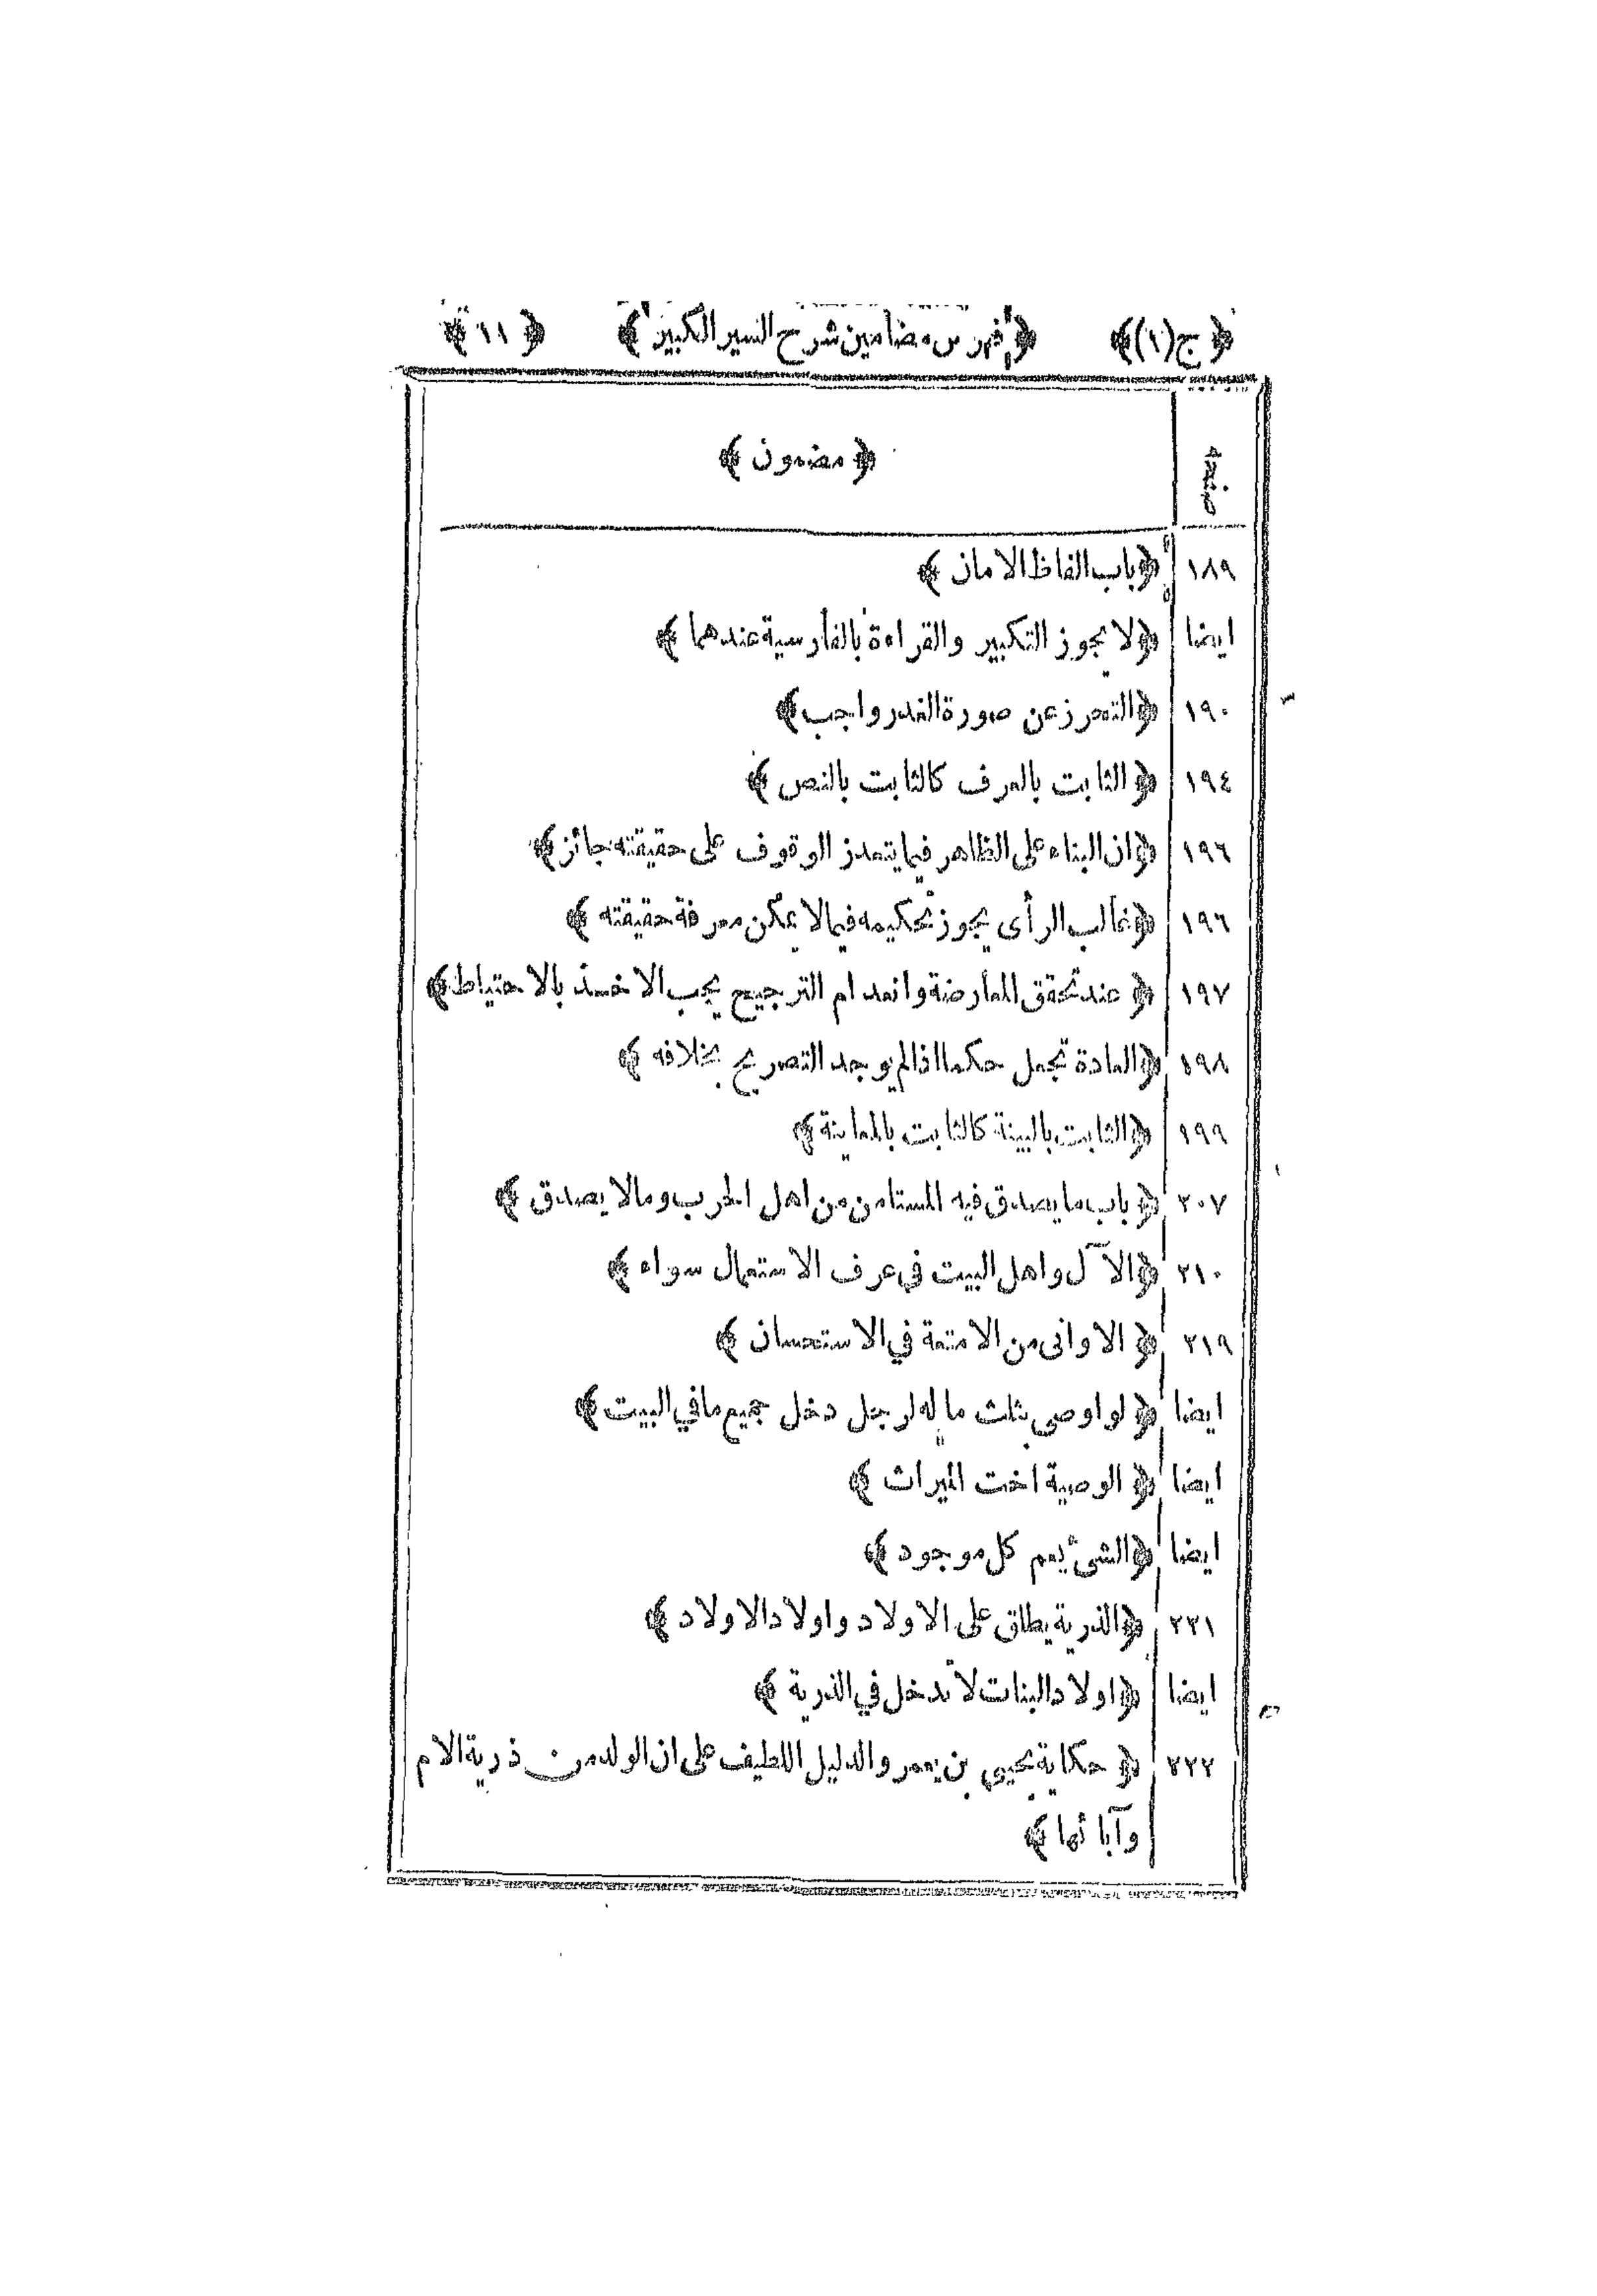 ﴿ ج (١) ﴾ ﴿ فهرس مضامين شرح السير الكبير ﴾ ﴿ ١١ ﴾
صفحه ﴿ مضمون ﴾
١٨٩ ﴿ باب الفاظ الامان ﴾
ايضا ﴿ لا يجوز التكبير والقراءة بالفارسية عندهما ﴾
١٩٠ ﴿ التحرز عن صورة الغدر واجب ﴾
١٩٤ ﴿ الثابت بالعرف كالثابت بالنص ﴾
١٩٦ ﴿ ان البناء على الظاهر فيما يتعذر الوقوف على حقيقته جائز ﴾
١٩٦ ﴿ غالب الرأى يجوز تحكيمه فيما لا يمكن معرفة حقيقته ﴾
١٩٧ ﴿ عند تحقق المعارضة وانعدام الترجيح يجب الاخذ بالاحتياط ﴾
١٩٨ ﴿ العادة تجعل حكما اذا لم يوجد التصريح بخلافه ﴾
١٩٩ ﴿ الثابت بالبينة كالثابت بالمعاينة ﴾
٢٠٧ ﴿ باب ما يصدق فيه المستامن من اهل الحرب وما لا يصدق ﴾
٢١٠ ﴿ الآل واهل البيت فى عرف الاستعمال سواء ﴾
٢١٩ ﴿ الاوانى من الامتعة في الاستحسان ﴾
ايضا ﴿ لو اوصى بثلث ماله لرجل دخل جميع ما في البيت ﴾
ايضا ﴿ الوصية اخت الميراث ﴾
ايضا ﴿ الشئ يعم كل موجود ﴾
٢٢١ ﴿ الذرية يطلق على الاولاد واولاد الاولاد ﴾
ايضا ﴿ اولاد البنات لا تدخل في الذرية ﴾
٢٢٢ ﴿ حكاية يحيى بن يعمر والدليل اللطيف على ان الولد من ذرية الام
وآبائها ﴾